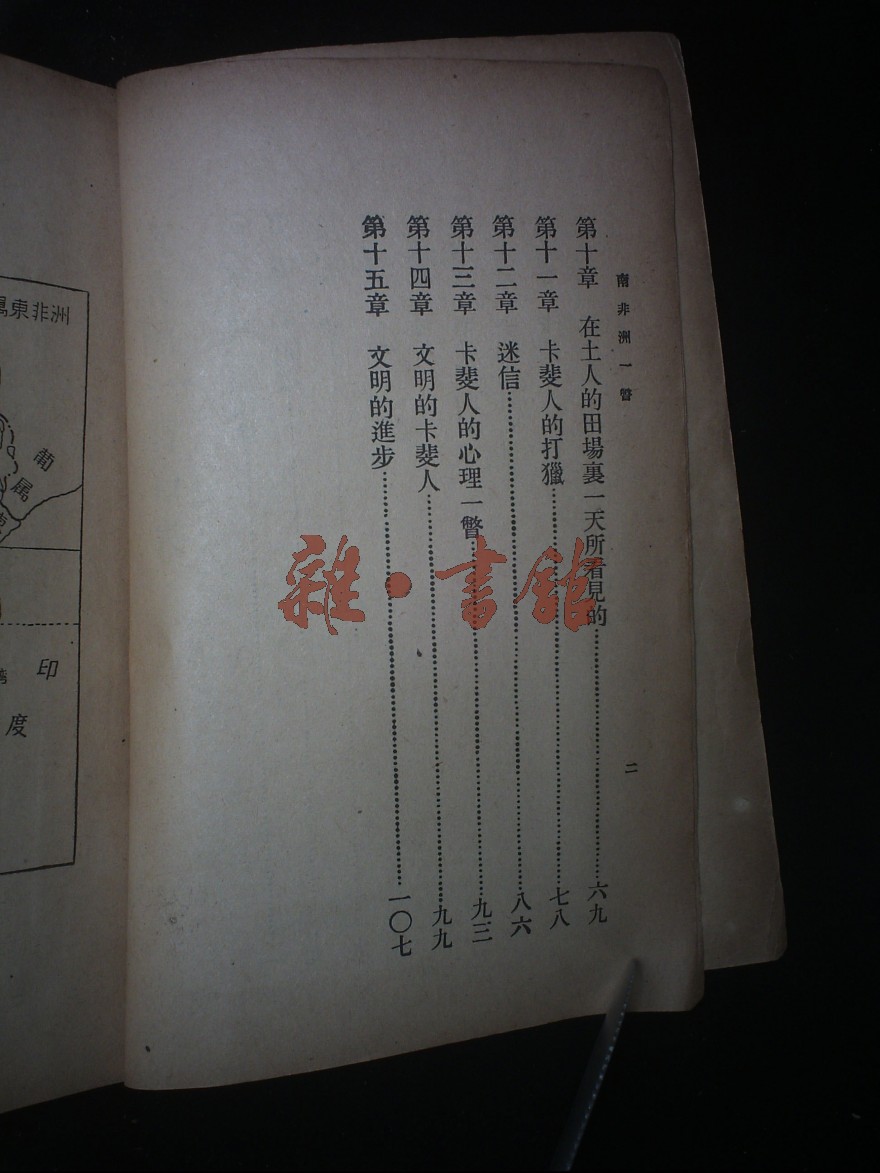 南非洲一瞥
二
第十章　在土人的田場裏一天所看見的……六九
第十一章　卡斐人的打獵……七八
第十二章　迷信……八六
第十三章　卡斐人的心理一瞥……九三
第十四章　文明的卡斐人……九九
第十五章　文明的進步……一〇七
雜·書館
屬東非洲
葡屬東
印度